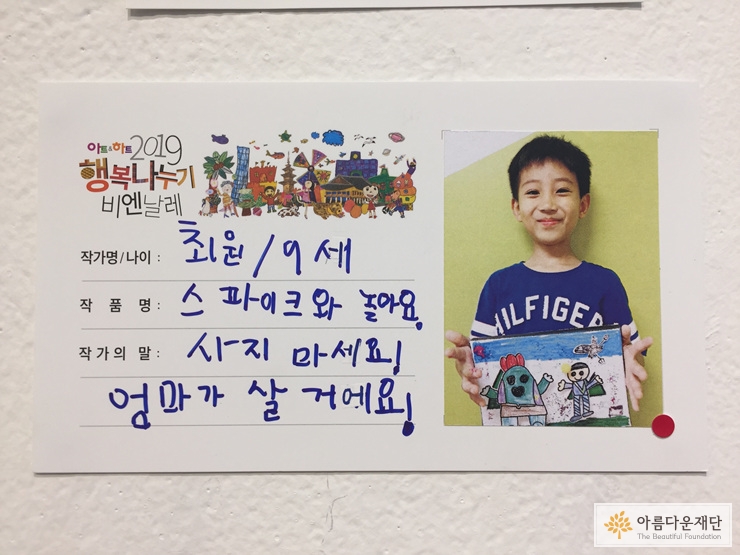 아트&하트 2019
행복나누기
비엔날레
작가명/나이 : 최원 / 9세
작 품 명 : 스파이크와 놀아요.
작가의 말 : 사지 마세요!
엄마가 살 거에요!
HILFIGER
아름다운재단
The Beautiful Foundation